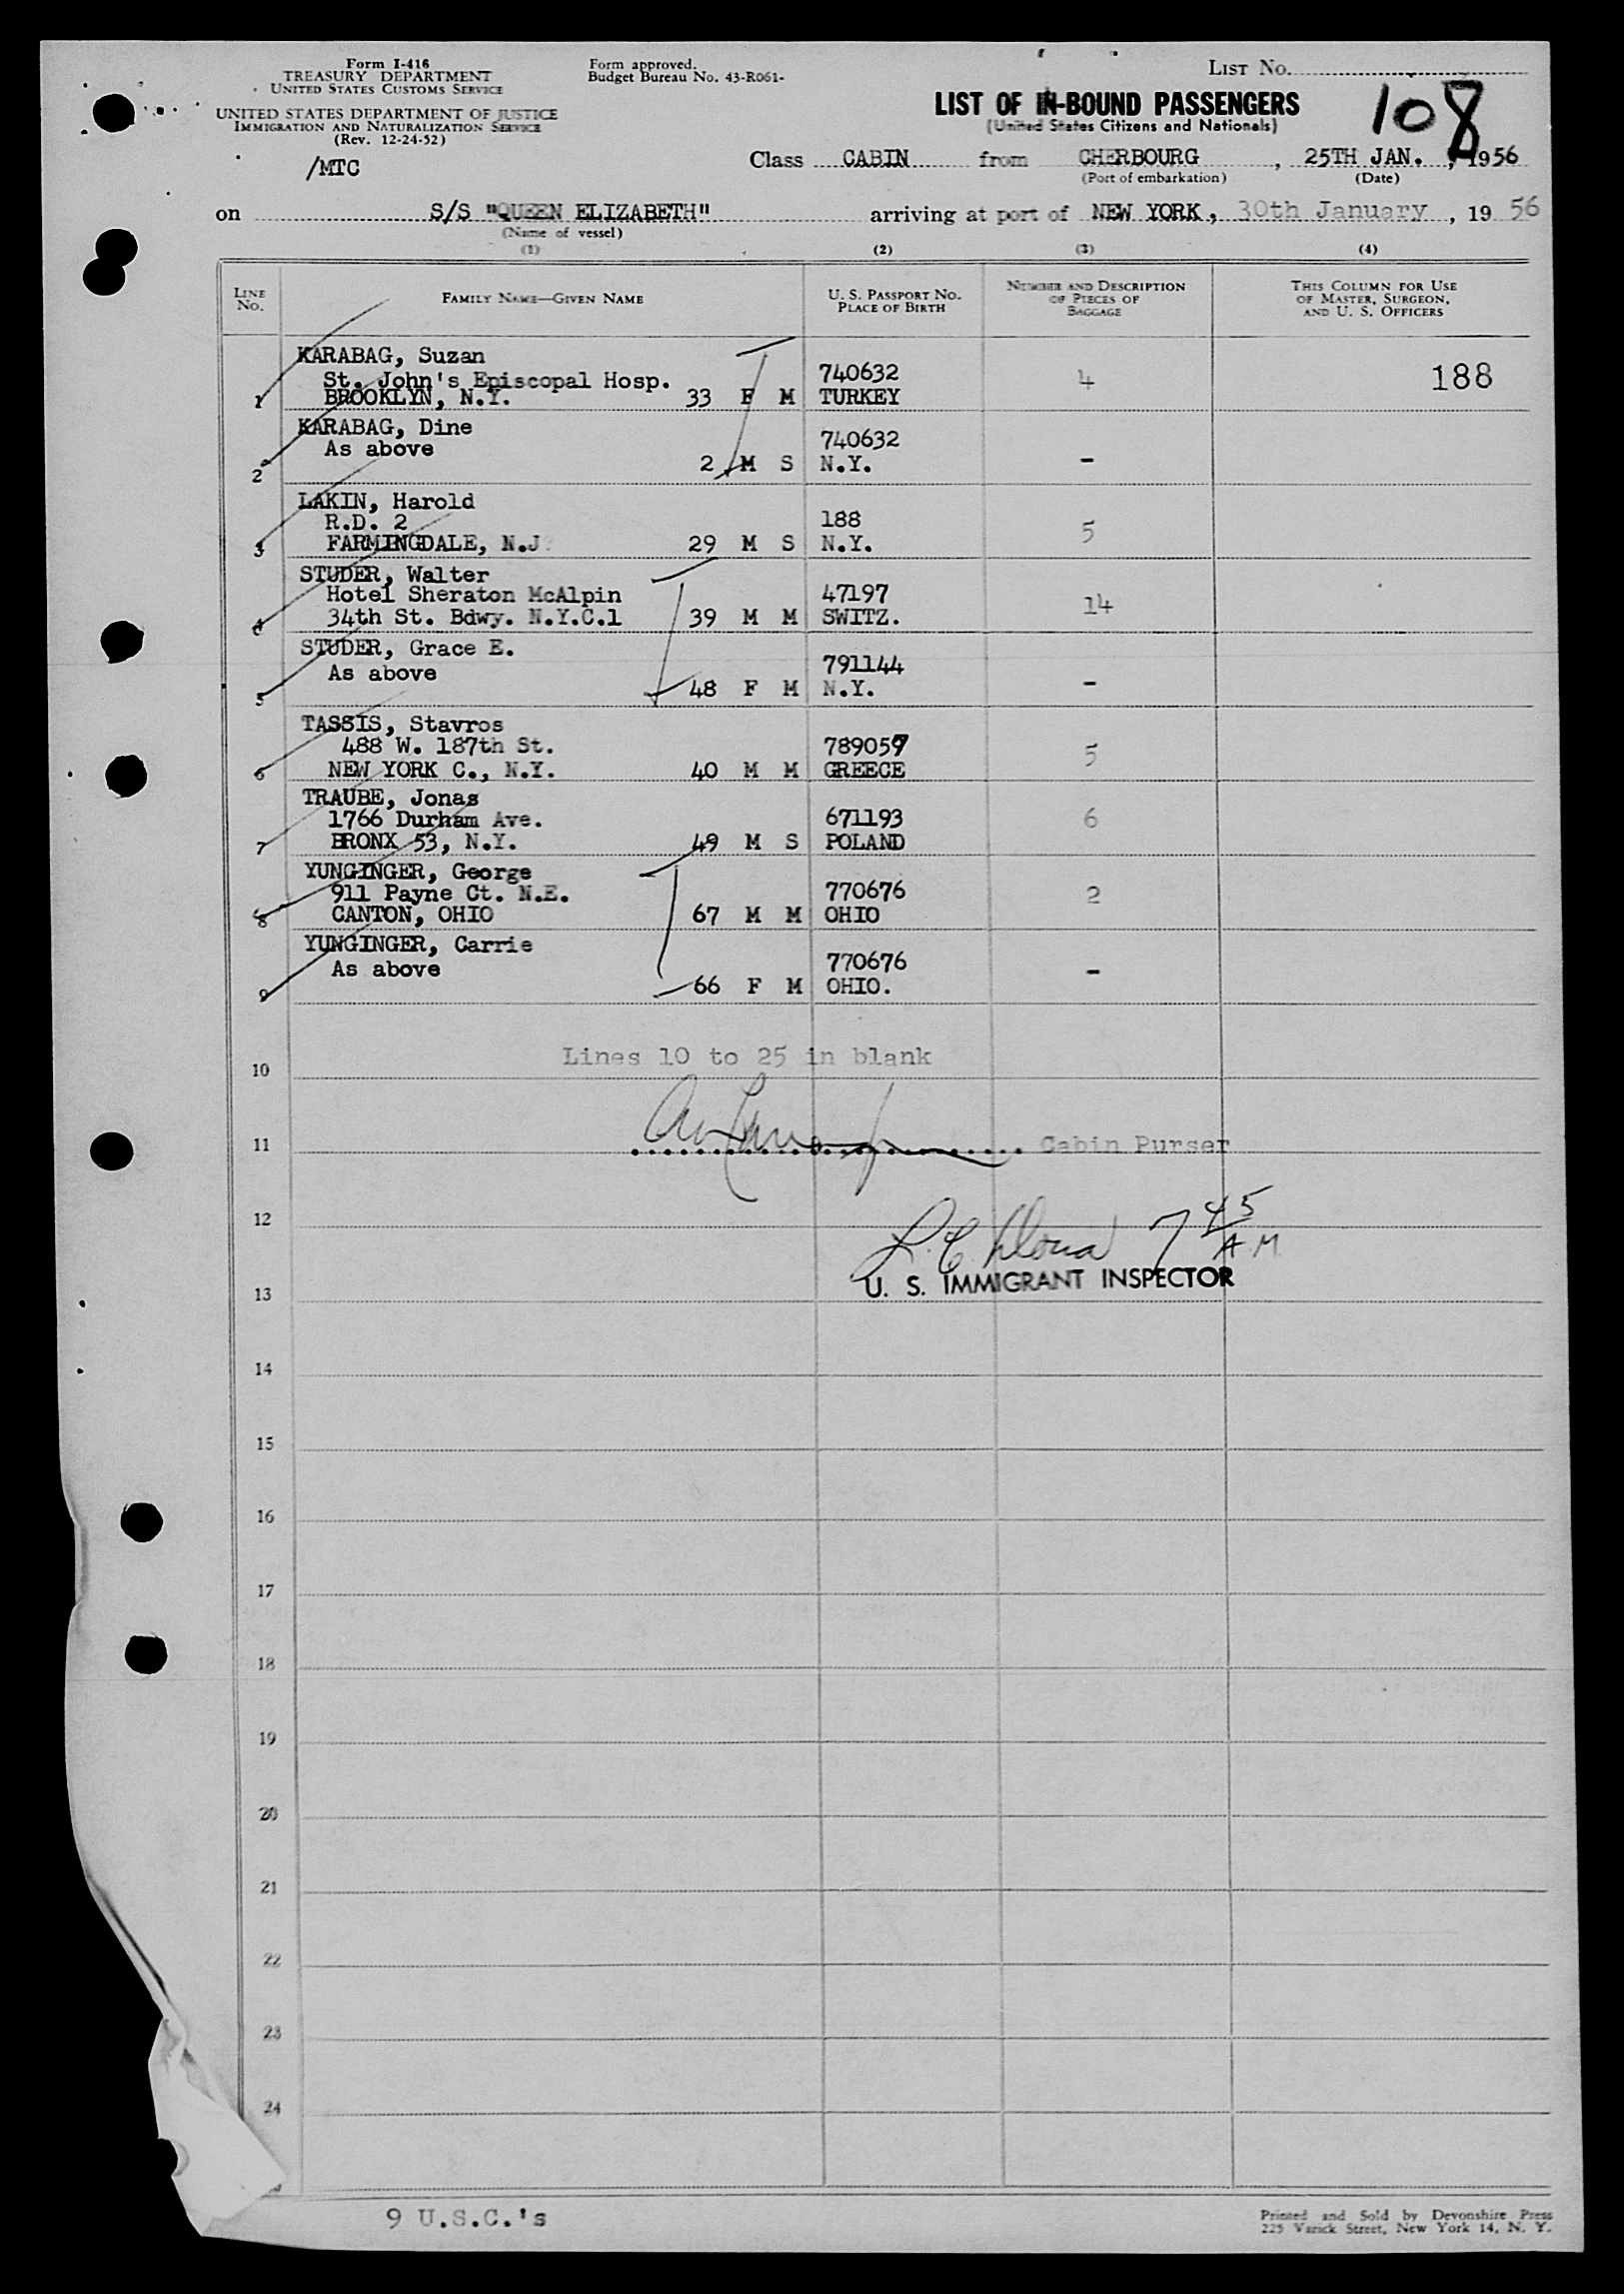 Form I-416
TREASURY DEPARTMENT
UNITED STATES CUSTOMS SERVICE
UNITED STATES DEPARTMENT OF JUSTICE
IMMIGRATION AND NATURALIZATION SERVICE
(Rev. 12-24-52)
/MTC
Form approved.
Budget Bureau No. 43-R061-
LIST No.
108
LIST OF IN-BOUND PASSENGERS
(United States Citizens and Nationals)
Class CABIN from CHERBOURG, 25TH JAN., 1956
(Port of embarkation) (Date)
on S/S "QUEEN ELIZABETH" arriving at port of NEW YORK, 30th January, 19 56
(Name of vessel)
(1) (2) (3) (4)
LINE No. FAMILY NAME—GIVEN NAME U. S. PASSPORT No. PLACE OF BIRTH NUMBER AND DESCRIPTION OF PIECES OF BAGGAGE THIS COLUMN FOR USE OF MASTER, SURGEON, AND U. S. OFFICERS
KARABAG, Suzan
St. John's Episcopal Hosp. 740632 4 188
1 BROOKLYN, N.Y. 33 F M TURKEY
KARABAG, Dine
As above 740632
2 2 M S N.Y. -
LAKIN, Harold
R.D. 2 188 5
3 FARMINGDALE, N.J. 29 M S N.Y.
STUDER, Walter
Hotel Sheraton McAlpin 47197 14
4 34th St. Bdwy. N.Y.C.1 39 M M SWITZ.
STUDER, Grace E.
As above 791144
5 48 F M N.Y. -
TASSIS, Stavros
488 W. 187th St. 789057 5
6 NEW YORK C., N.Y. 40 M M GREECE
TRAUBE, Jonas
1766 Durham Ave. 671193 6
7 BRONX 53, N.Y. 49 M S POLAND
YUNGINGER, George
911 Payne Ct. N.E. 770676 2
8 CANTON, OHIO 67 M M OHIO
YUNGINGER, Carrie
As above 770676 -
9 66 F M OHIO.
Lines 10 to 25 in blank
10
11 Cabin Purser
12 7 45 A.M
U. S. IMMIGRANT INSPECTOR
13
14
15
16
17
18
19
20
21
22
23
24
9 U.S.C.'s
Printed and Sold by Devonshire Press
225 Varick Street, New York 14, N. Y.